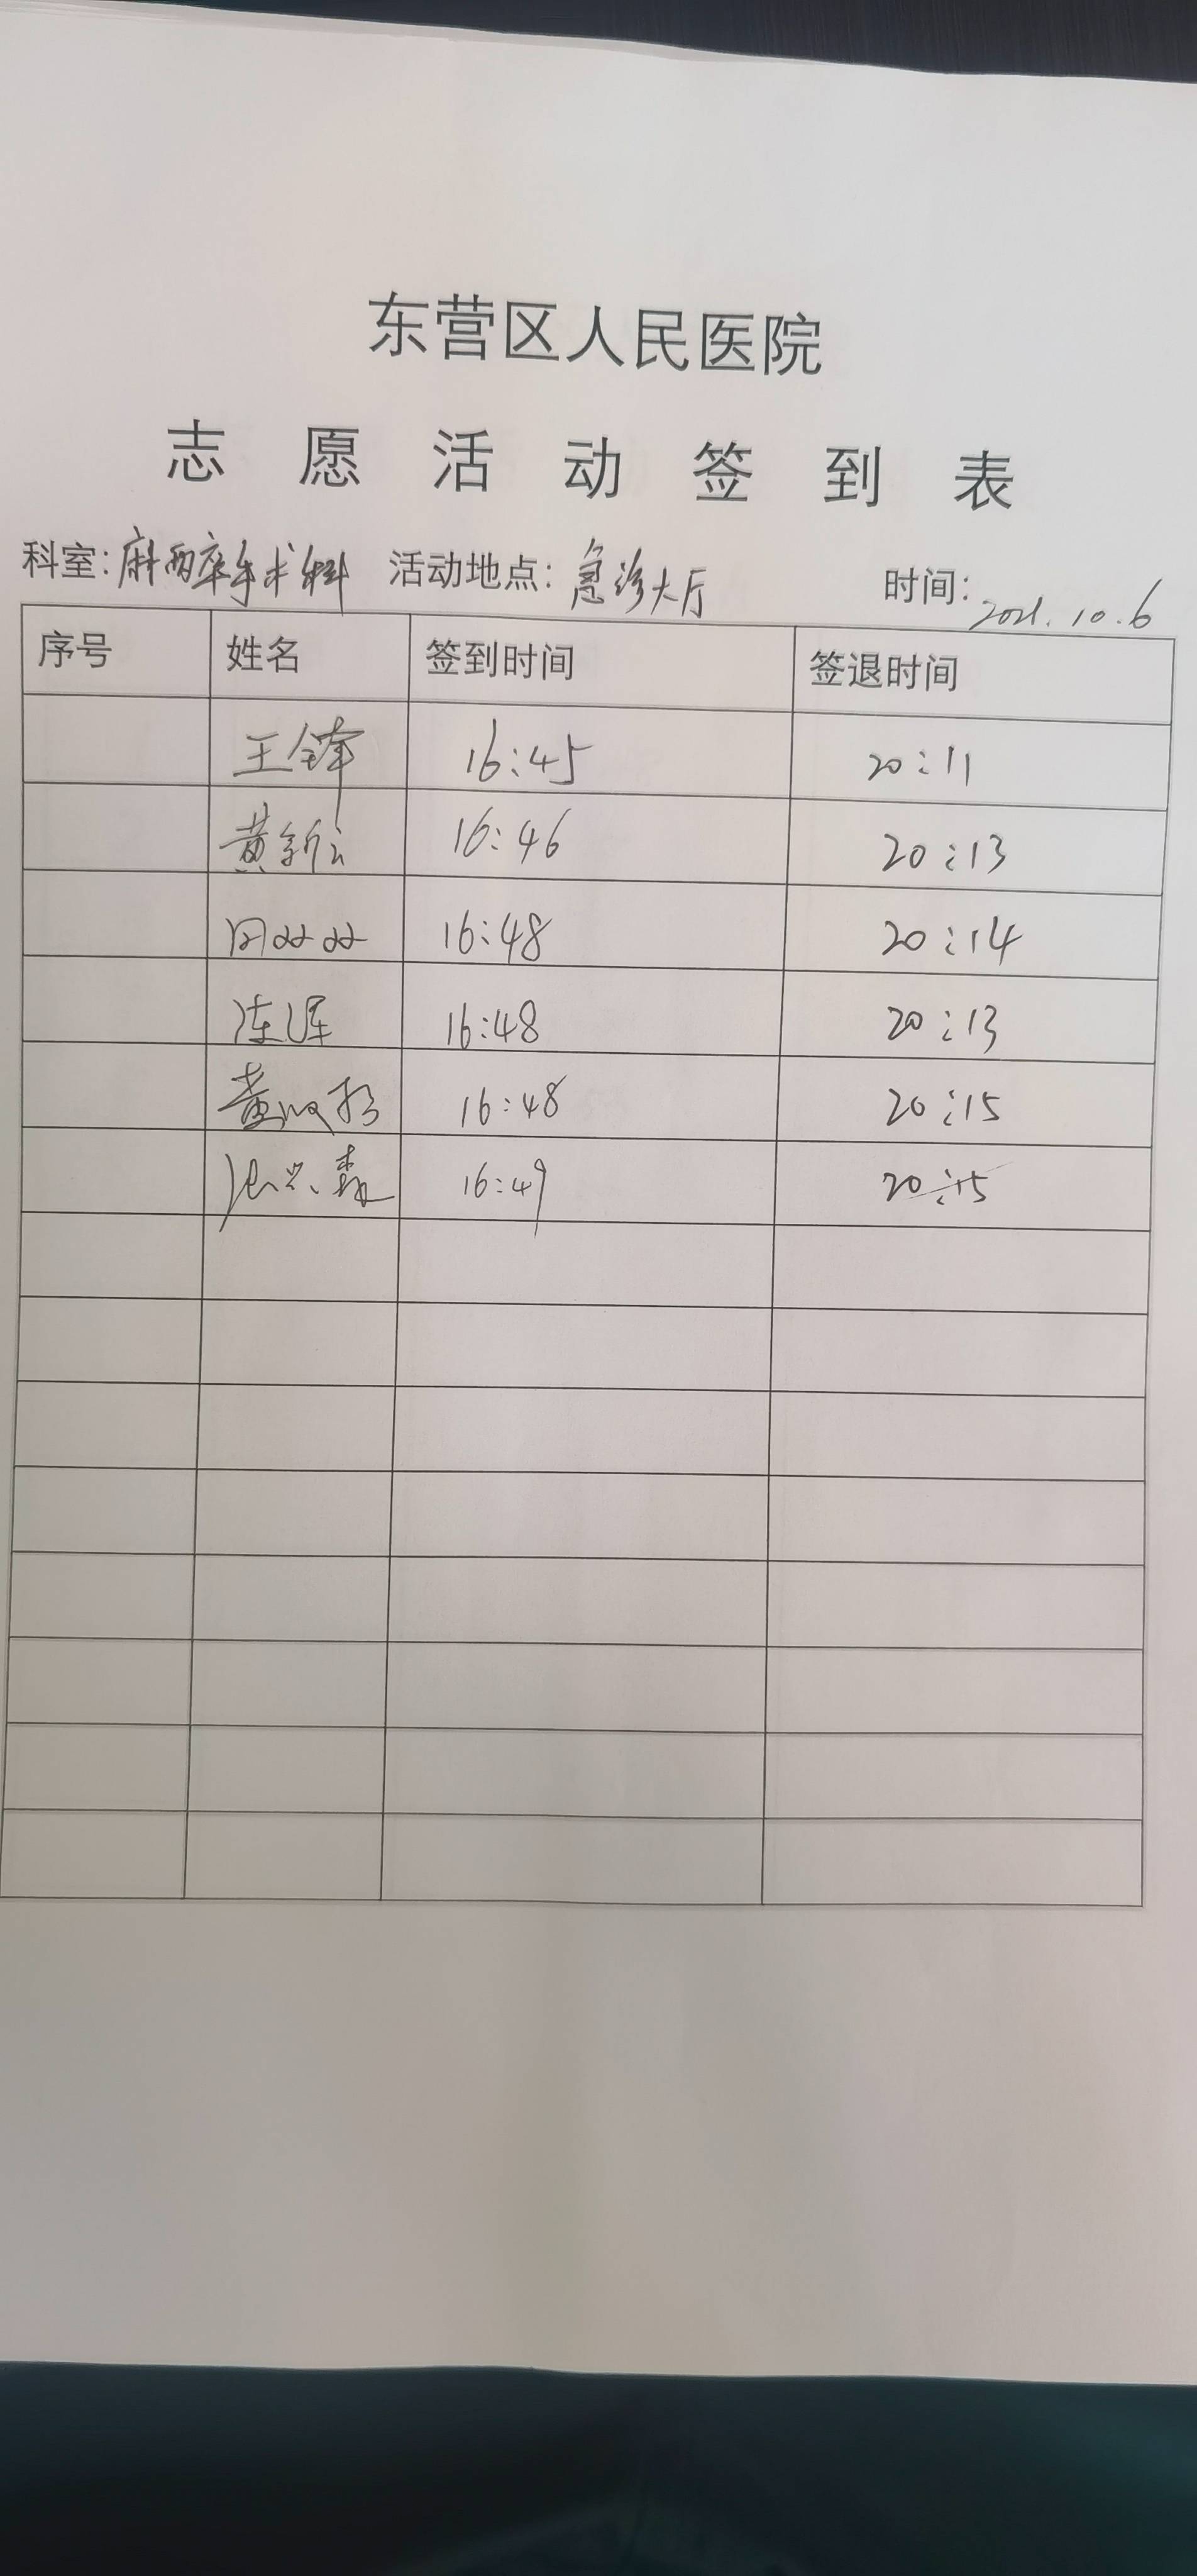 东营区人民医院
志愿活动签到表
科室:麻醉手术科 活动地点:急诊大厅 时间:2021.10.6
序号 姓名 签到时间 签退时间
王锋 16:45 20:11
黄新 16:46 20:13
周双双 16:48 20:14
陈 16:48 20:13
黄 16:48 20:15
张 森 16:49 20:15